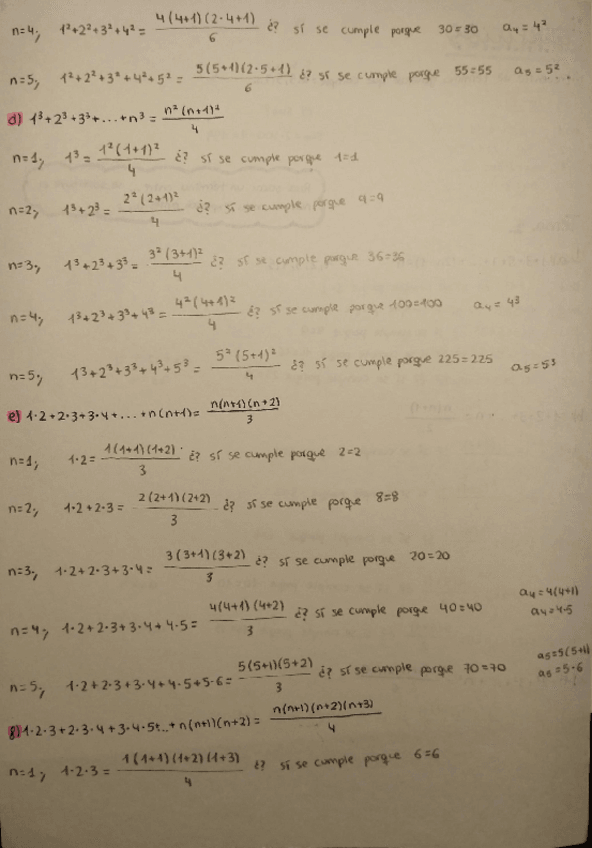 n=4; 1²+2²+3²+4² = 4(4+1)(2·4+1)/6 ¿? sí se cumple porque 30=30 a₄=4²
n=5; 1²+2²+3²+4²+5² = 5(5+1)(2·5+1)/6 ¿? sí se cumple porque 55=55 a₅=5².
d) 1³+2³+3³+...+n³ = n²(n+1)²/4
n=1; 1³ = 1²(1+1)²/4 ¿? sí se cumple porque 1=1
n=2; 1³+2³ = 2²(2+1)²/4 ¿? sí se cumple porque 9=9
n=3; 1³+2³+3³ = 3²(3+1)²/4 ¿? sí se cumple porque 36=36
n=4; 1³+2³+3³+4³ = 4²(4+1)²/4 ¿? sí se cumple porque 100=100 a₄=4³
n=5; 1³+2³+3³+4³+5³ = 5²(5+1)²/4 ¿? sí se cumple porque 225=225 a₅=5³
e) 1·2+2·3+3·4+...+n(n+1) = n(n+1)(n+2)/3
n=1; 1·2 = 1(1+1)(1+2)/3 ¿? sí se cumple porque 2=2
n=2; 1·2+2·3 = 2(2+1)(2+2)/3 ¿? sí se cumple porque 8=8
n=3; 1·2+2·3+3·4 = 3(3+1)(3+2)/3 ¿? sí se cumple porque 20=20
n=4; 1·2+2·3+3·4+4·5 = 4(4+1)(4+2)/3 ¿? sí se cumple porque 40=40 a₄=4(4+1)
a₄=4·5
n=5; 1·2+2·3+3·4+4·5+5·6 = 5(5+1)(5+2)/3 ¿? sí se cumple porque 70=70 a₅=5(5+1)
a₅=5·6
f) 1·2·3+2·3·4+3·4·5+...+n(n+1)(n+2) = n(n+1)(n+2)(n+3)/4
n=1; 1·2·3 = 1(1+1)(1+2)(1+3)/4 ¿? sí se cumple porque 6=6